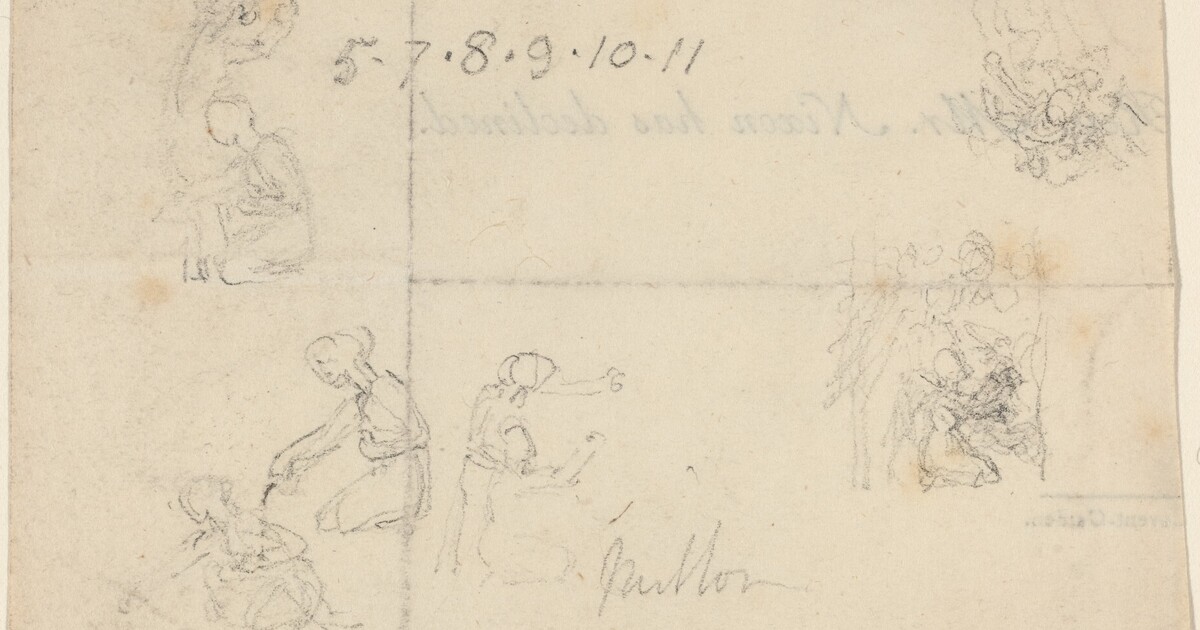 5-7.8.9.10.11
Mr. Nixon has declined.
Covent-Garden.